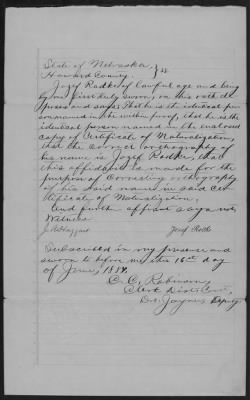 State of Nebraska } ss
Howard County
Jozef Radke of lawful age and being
by me first duly sworn, on this oath de-
poses and says: That he is the identical per-
son named in the within proof, that he is the
identical person named in the enclosed
copy of Certificate of Naturalization,
that the correct orthography of
his name is Jozef Radke, that
this affidavit is made for the
purpose of correcting orthography
of his said name in said Cer-
tificate of Naturalization,
And further affiant says not,
Witness
Jozef
Subscribed in my presence and
sworn to before me this 16th day
of June, 1884.
C. C. Robinson
Clerk Dist. Court
Deputy